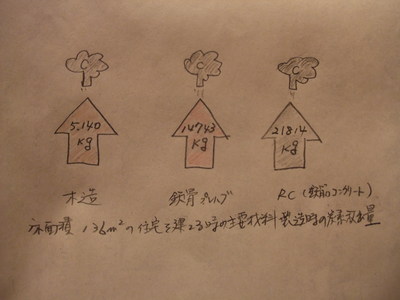 5,140
kg
14743
kg
21814
kg
木造
鉄骨プレハブ
RC (鉄筋コンクリート)
床面積 136m²の住宅を建てる時の主要材料製造時の炭素放出量